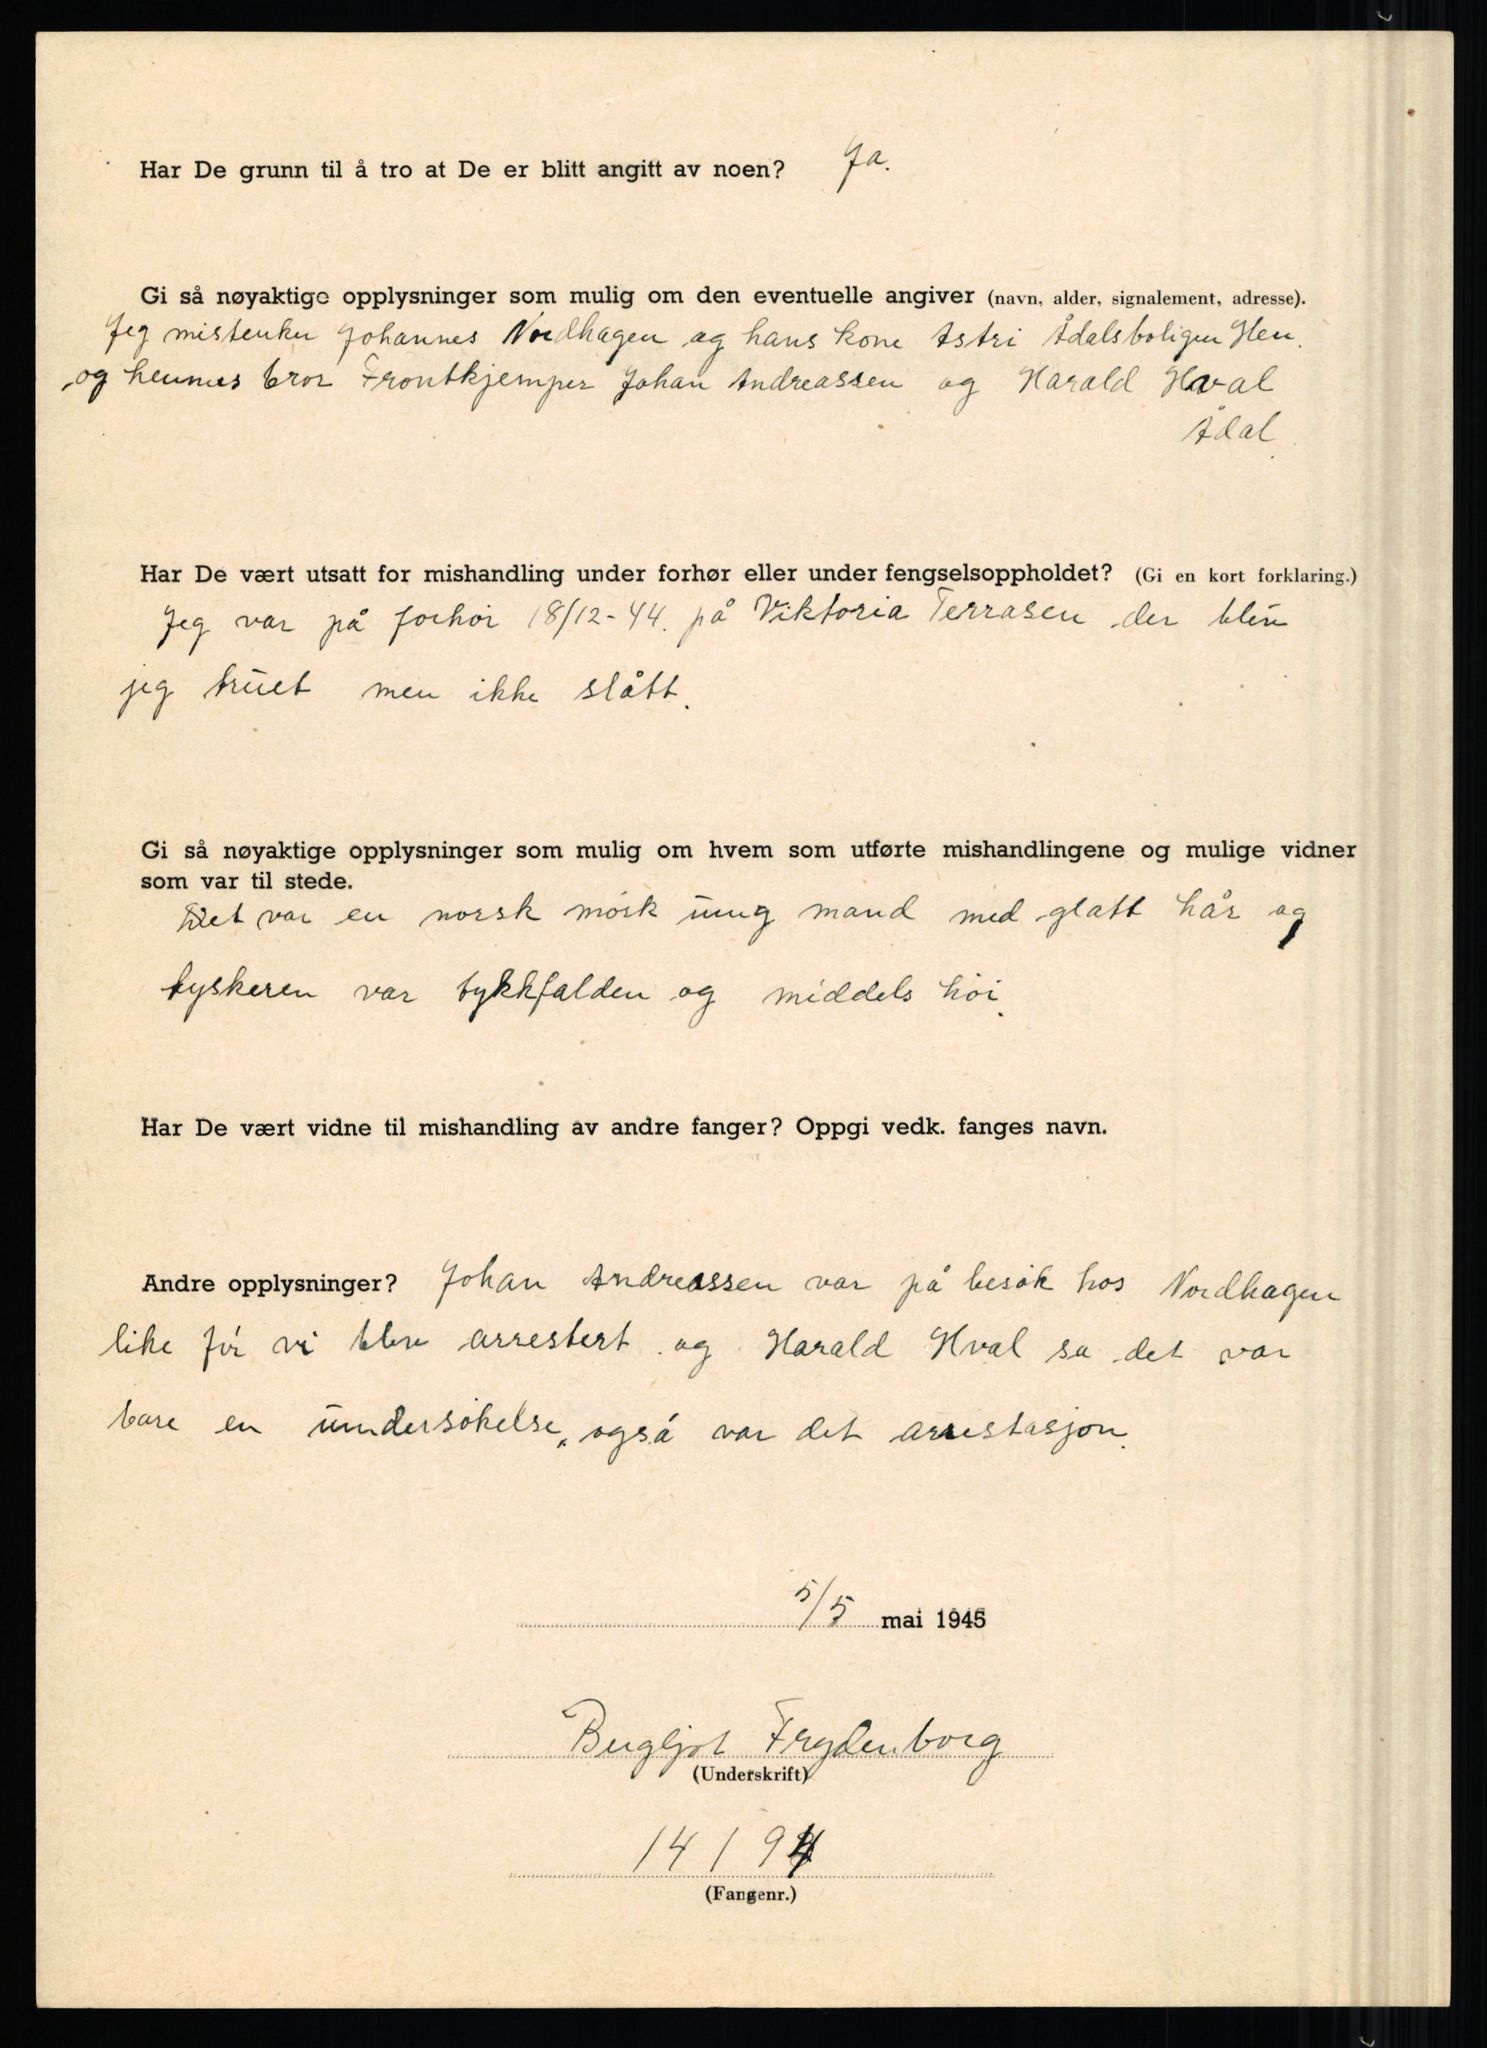 Har De grunn til å tro at De er blitt angitt av noen? Ja.
Gi så nøyaktige opplysninger som mulig om den eventuelle angiver (navn, alder, signalement, adresse).
Jeg mistenker Johannes Nordhagen og hans kone Astri Ådalsboligen Hen.
og hennes bror Frontkjemper Johan Andreassen og Harald Hval
Ådal.
Har De vært utsatt for mishandling under forhør eller under fengselsoppholdet? (Gi en kort forklaring.)
Jeg var på forhör 18/12-44. på Viktoria Terrasen der blev
jeg truet men ikke slått.
Gi så nøyaktige opplysninger som mulig om hvem som utførte mishandlingene og mulige vidner
som var til stede.
Det var en norsk mörk ung mand med glatt hår og
tyskeren var tykkfalden og middels höi.
Har De vært vidne til mishandling av andre fanger? Oppgi vedk. fanges navn.
Andre opplysninger? Johan Andreassen var på besök hos Nordhagen
like för vi blev arrestert og Harald Hval sa det var
bare en undersökelse, også var det arrestasjon.
5/5 mai 1945
Bergljot Frydenborg
(Underskrift)
14194
(Fangenr.)